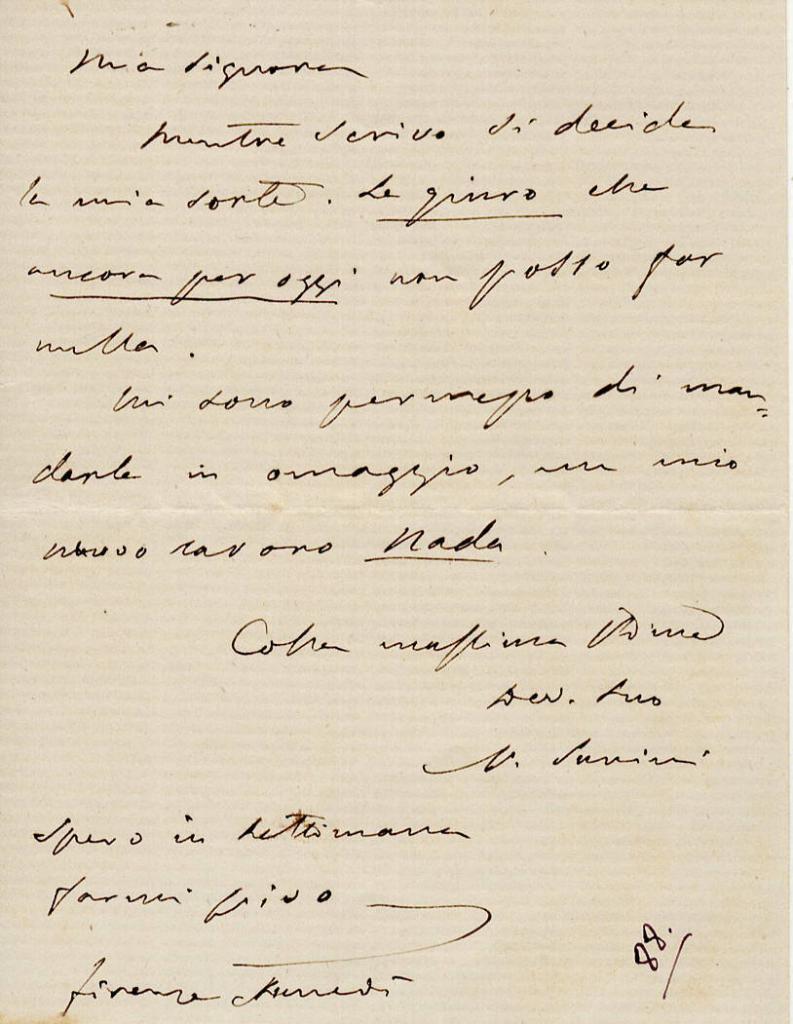 Mia Signora
Mentre scrivo si decide
la mia sorte. Le giuro che
ancora per oggi non posso far
nulla.
Mi sono permesso di man=
darle in omaggio, un mio
nuovo lavoro Nada.
Colla massima stima
Dev. Suo
Spero in settimana
farmi vivo
Firenze
88.